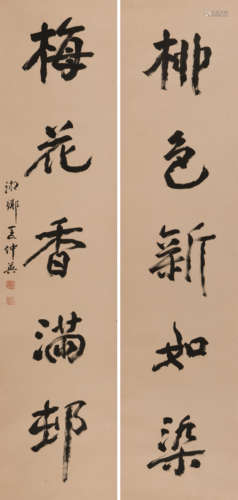 柳色新如染
梅花香滿邨
湘鄉王仲英